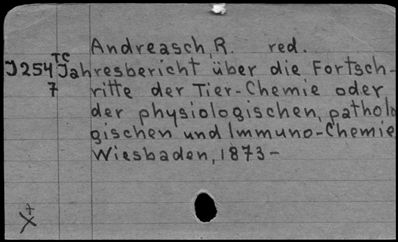 Andreasch, R. red.
TC
J254 Jahresbericht über die Fortsch-
7 ritte der Tier-Chemie oder
der physiologischen, patholo
gischen und Immuno-Chemie
Wiesbaden, 1873-
X+